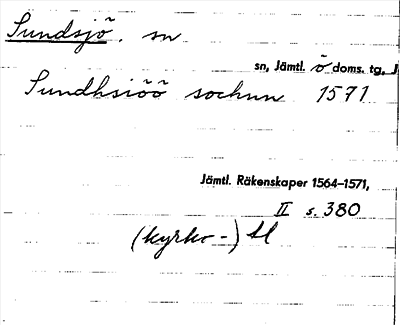 Sundsjö. sn
sn, Jämtl. ö doms. tg, J
Sundhsiöö sochnn 1571
Jämtl. Räkenskaper 1564–1571,
II s. 380
(kyrko-) tl